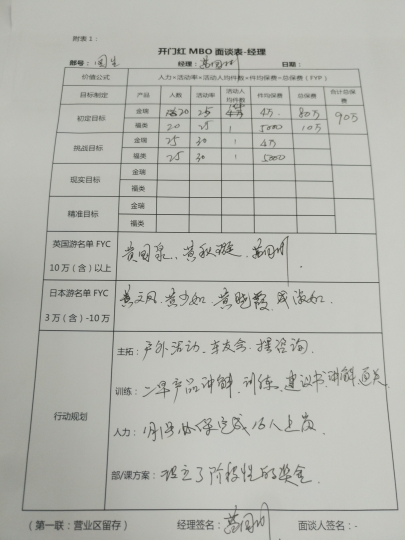 附表1：
开门红 MBO 面谈表-经理
部号： 经理： 日期：
价值公式 人力×活动率×活动人均件数×件均保费=总保费（FYP）
目标制定 产品 人数 活动率 活动人均件数 件均保费 总保费 合计总保费
初定目标 金瑞 20 25 4万 80万 90万
福类 20 25 1 5000 10万
挑战目标 金瑞 25 30 1 4万
福类 25 30 1 5000
现实目标 金瑞
福类
精准目标 金瑞
福类
英国游名单 FYC
10万（含）以上
日本游名单 FYC
3万（含）-10万
行动规划
主拓：户外活动、车友会、摆咨询.
训练：二早产品讲解、训练、建议书讲解通关
人力：1月份必保完成16人上岗
部/课方案：设立了阶段性的奖金.
（第一联：营业区留存） 经理签名： 面谈人签名：-